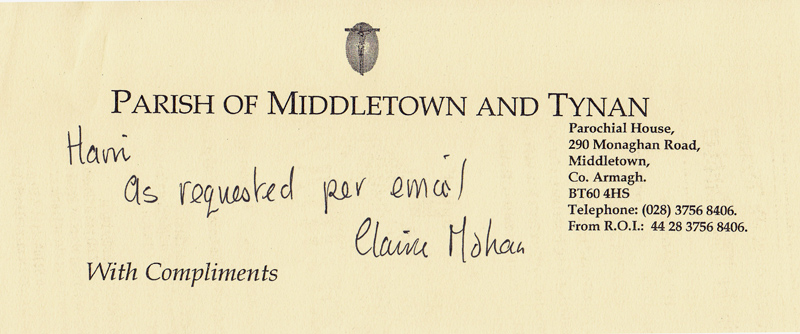 PARISH OF MIDDLETOWN AND TYNAN
Parochial House,
290 Monaghan Road,
Middletown,
Co. Armagh.
BT60 4HS
Telephone: (028) 3756 8406.
From R.O.I.: 44 28 3756 8406.
as requested per email
Claire Mohan
With Compliments